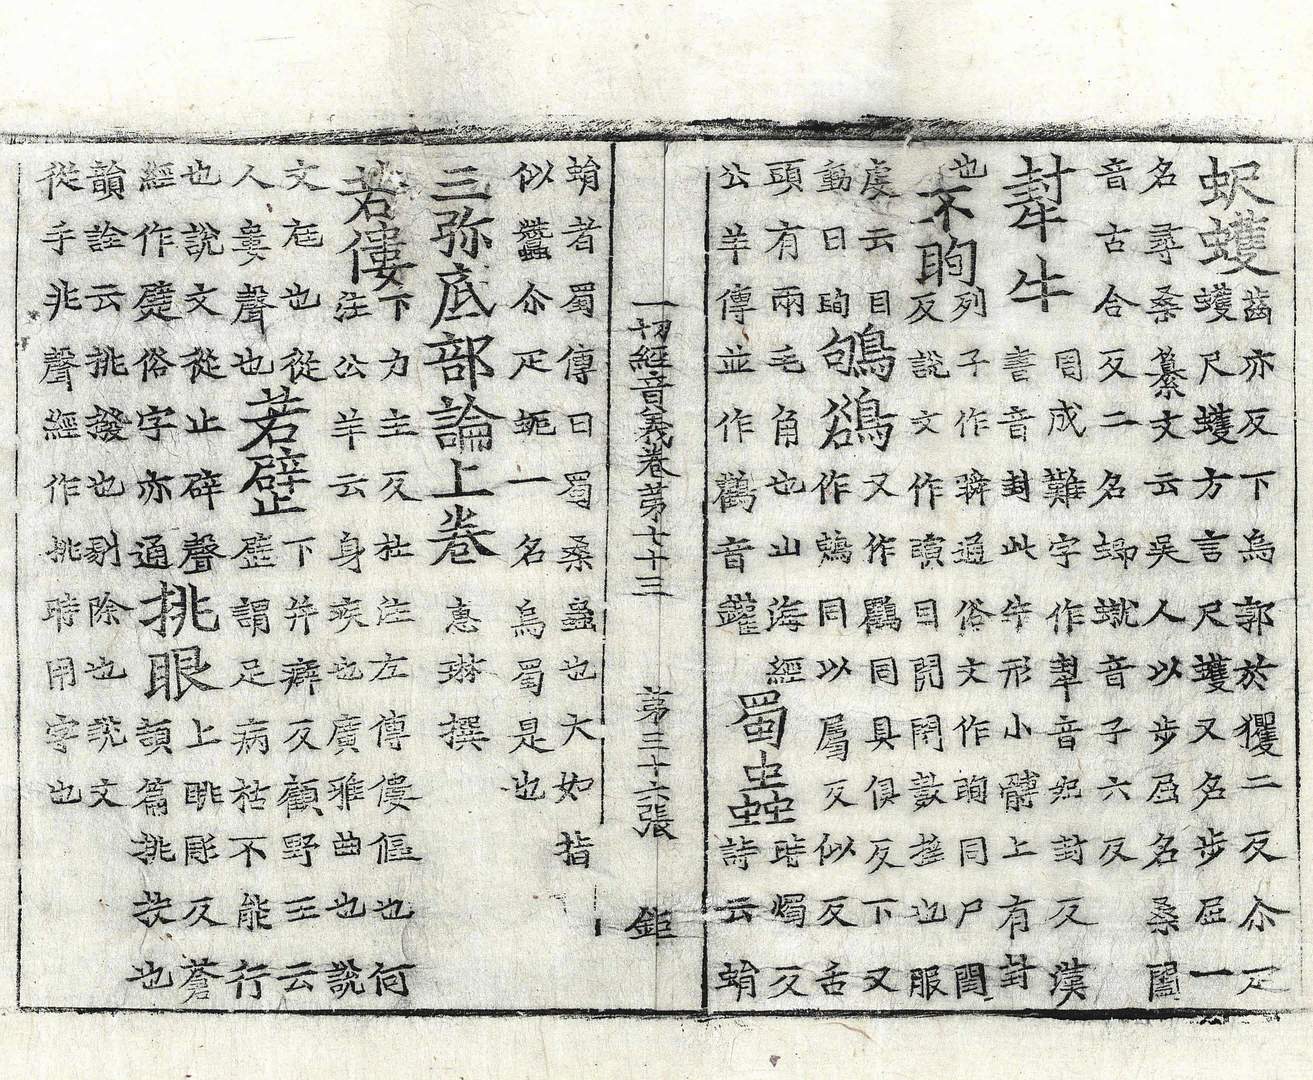 蚇蠖齒亦反下烏郭於玃二反尒疋
蠖尺蠖方言尺蠖又名步屈一
名尋桑纂文云吳人以步屈名桑闔
音古合反二名蝍䗇音子六反
犎牛周成難字作犎音妃封反漢
書音封此牛形小髆上有封
也
不眴列子作瞬通俗文作眴同尸閏
反說文作瞚目開閉數搖也服
虔云目
動曰眴
鴝鵒又作鸜同具俱反下又
作鵒同以屬反似反舌
頭有兩毛角也山海經
公羊傳並作鸛音鑵
蜀䖵時燭反
詩云蜎
一切經音義卷第七十三　第三十六張　鉅
蜎者蜀傳曰蜀桑蟲也大如指
似蠶尒疋蚅一名烏蜀是也
三弥底部論上卷　惠琳撰
若僂下力主反杜注左傳僂傴也何
注公羊云身疾也廣雅曲也說
文尫也從
人婁聲也
若躄下并癖反顧野王云
躄謂足病枯不能行
也說文從止辟聲
經作躄俗字亦通
挑眼上眺彫反蒼
頡篇挑抉也
韻詮云挑撥也剔除也說文
從手兆聲經作挑時用字也